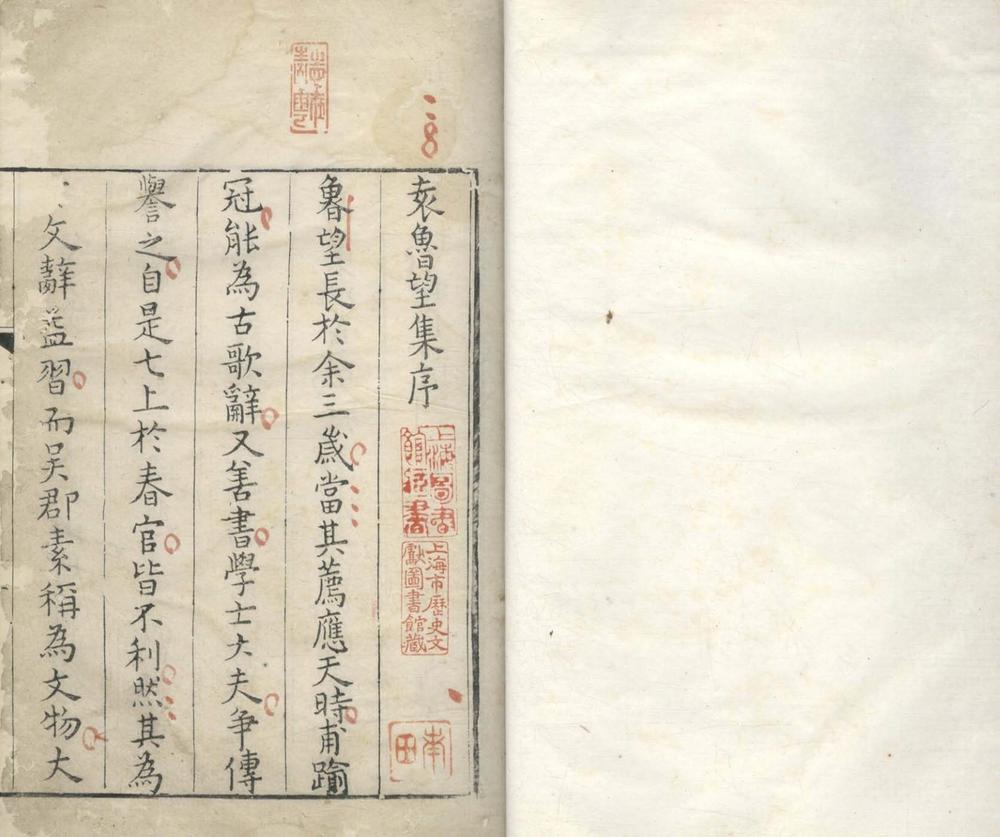 袁魯望集序
魯望長於余三歲當其薦應天時甫踰
冠能為古歌辭又善書學士大夫爭傳
譽之自是七上於春官皆不利然其為
文辭益習而吳郡素稱為文物大
上海圖書
館藏書
上海市歷史文
獻圖書館藏